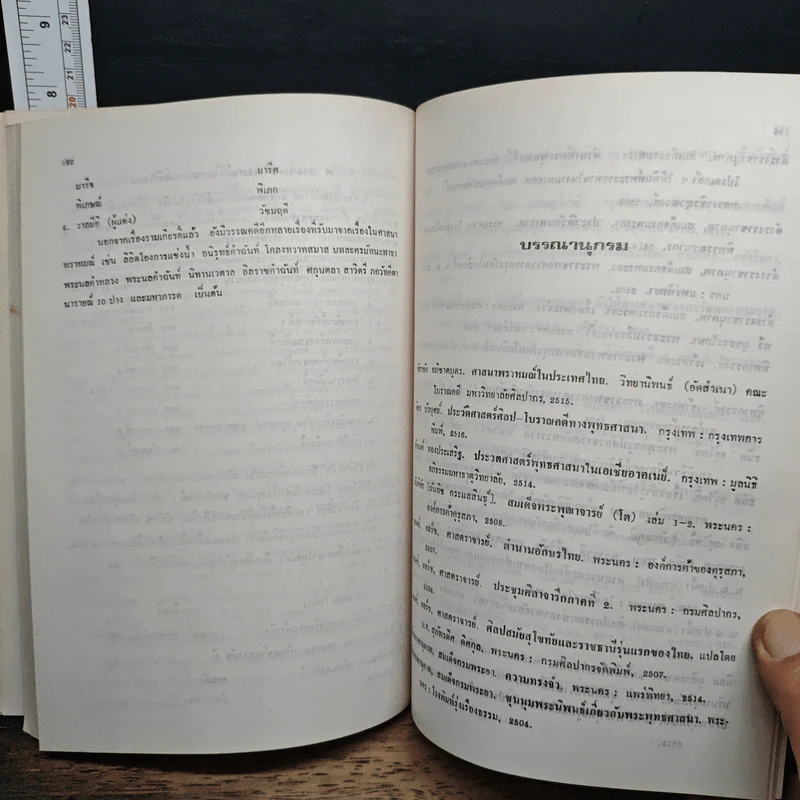 9
8
23
22
21
20
มารีศ
มารีจ
พิเภก
พิเภษณ์
วัชมฤดี
4. วาลมีกิ (ผู้แต่ง)
นอกจากเรื่องรามเกียรติ์แล้ว ยังมีวรรณคดีอีกหลายเรื่องที่รับมาจากเรื่องในศาสนา
พราหมณ์ เช่น ลิลิตโองการแช่งน้ำ อนิรุทธ์คำฉันท์ โคลงทวาทศมาส บทละครมัทนะพาธา
พระนลคำหลวง พระนลคำฉันท์ นิทานเวตาล อิลราชคำฉันท์ ศกุนตลา สาวิตรี ภควัทคีตา
นารายณ์ 10 ปาง และมหาภารต เป็นต้น
บรรณานุกรม
ศาสนาพราหมณ์ในประเทศไทย. วิทยานิพนธ์ (อัดสำเนา) คณะ
โบราณคดี มหาวิทยาลัยศิลปากร, 2515.
ประวัติศาสตร์ศิลป-โบราณคดีทางพุทธศาสนา. กรุงเทพ : กรุงเทพการ
พิมพ์, 2516.
ทองประเสริฐ. ประวัติศาสตร์พุทธศาสนาในเอเซียอาคเนย์. กรุงเทพ : มูลนิธิ
อภิธรรมมหาธาตุวิทยาลัย, 2514.
[ฉันทิชย์ กระแสสินธุ์]. สมเด็จพระพุฒาจารย์ (โต) เล่ม 1-2. พระนคร :
องค์การค้าคุรุสภา, 2508.
ยอร์ช, ศาสตราจารย์. ตำนานอักษรไทย. พระนคร : องค์การค้าของคุรุสภา,
2507.
ยอร์ช, ศาสตราจารย์. ประชุมศิลาจารึกภาคที่ 2. พระนคร : กรมศิลปากร,
2504.
ยอร์ช, ศาสตราจารย์. ศิลปสมัยสุโขทัยและราชธานีรุ่นแรกของไทย. แปลโดย
ม.จ. สุภัทรดิศ ดิศกุล. พระนคร : กรมศิลปากรจัดพิมพ์, 2507.
สมเด็จกรมพระยา. ความทรงจำ. พระนคร : แพร่พิทยา, 2514.
สมเด็จกรมพระยา. ชุมนุมพระนิพนธ์เกี่ยวกับพระพุทธศาสนา. พระ-
นคร : โรงพิมพ์รุ่งเรืองธรรม, 2504.